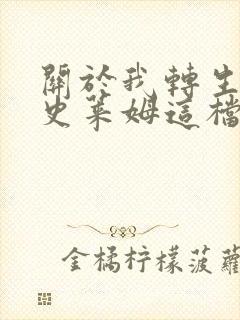 關於我轉生
史萊姆這檔
金橘柠檬菠蘿